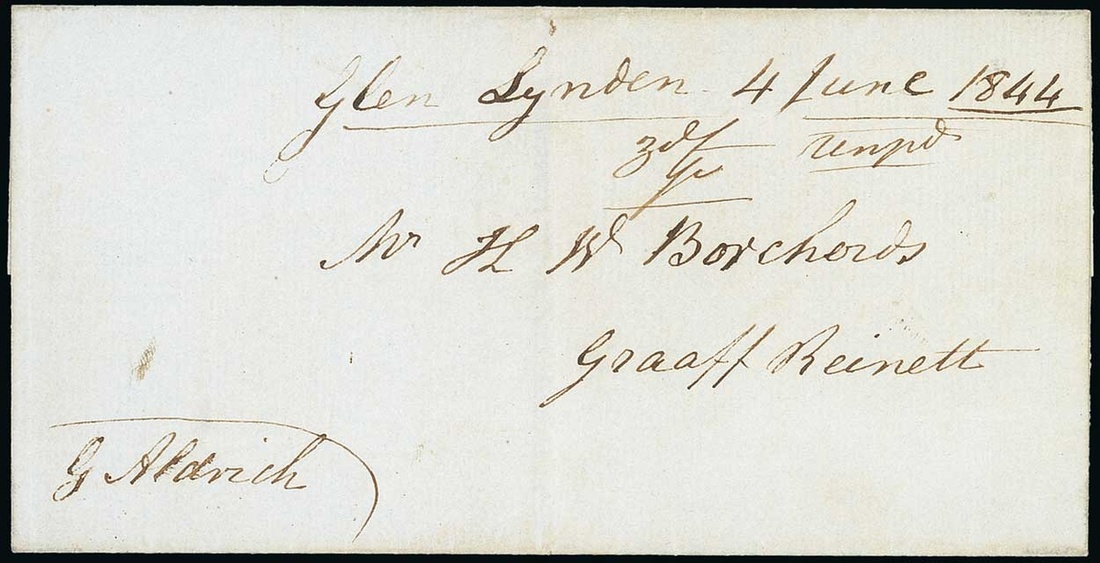 Glen Lynden 4 June 1844
unpd
Mr H W Borchords
Graaff Reinett
G Aldrich